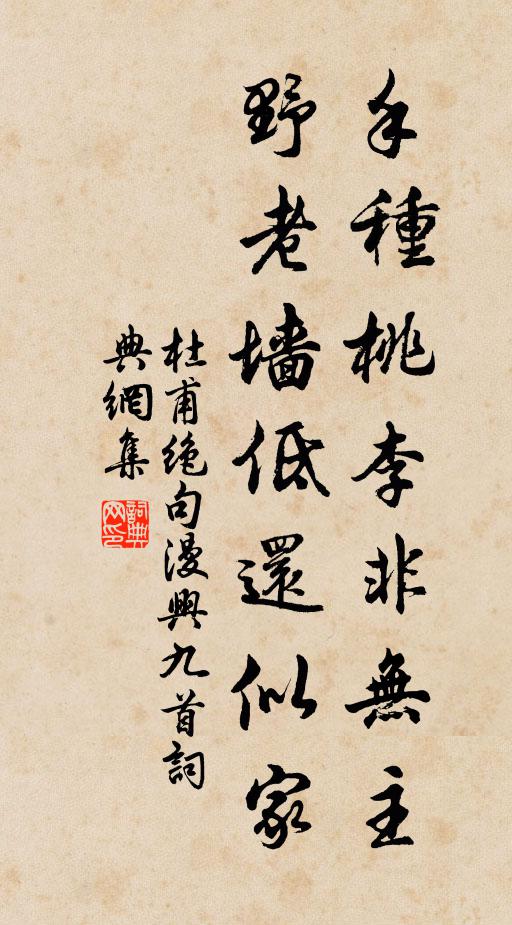 手種桃李非無主
野老墻低還似家
杜甫绝句漫興九首詞
典網集
詞典
网印